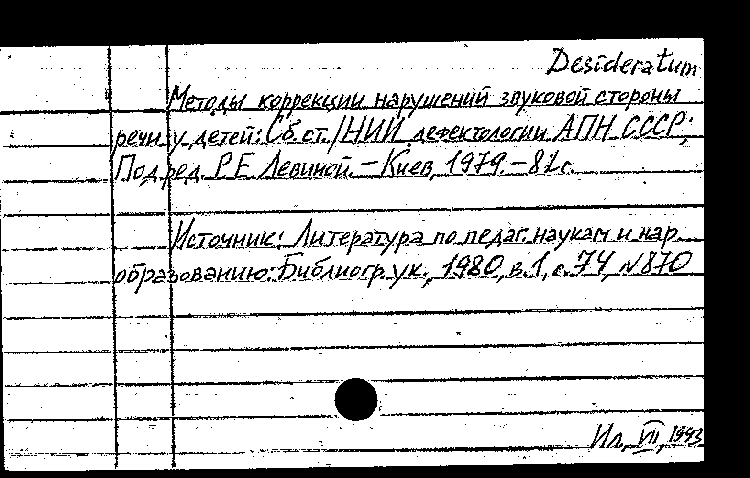 Desideratum
Методы коррекции нарушений звуковой стороны
речи у детей: Сб. ст. / НИИ дефектологии АПН СССР;
Под ред. Р. Е. Левиной. – Киев, 1979. – 81 с.
Источник: Литература по педаг. наукам и нар.
образованию: Библиогр. ук., 1980, в. 1, с. 74, № 870
Ил, VII, 1993